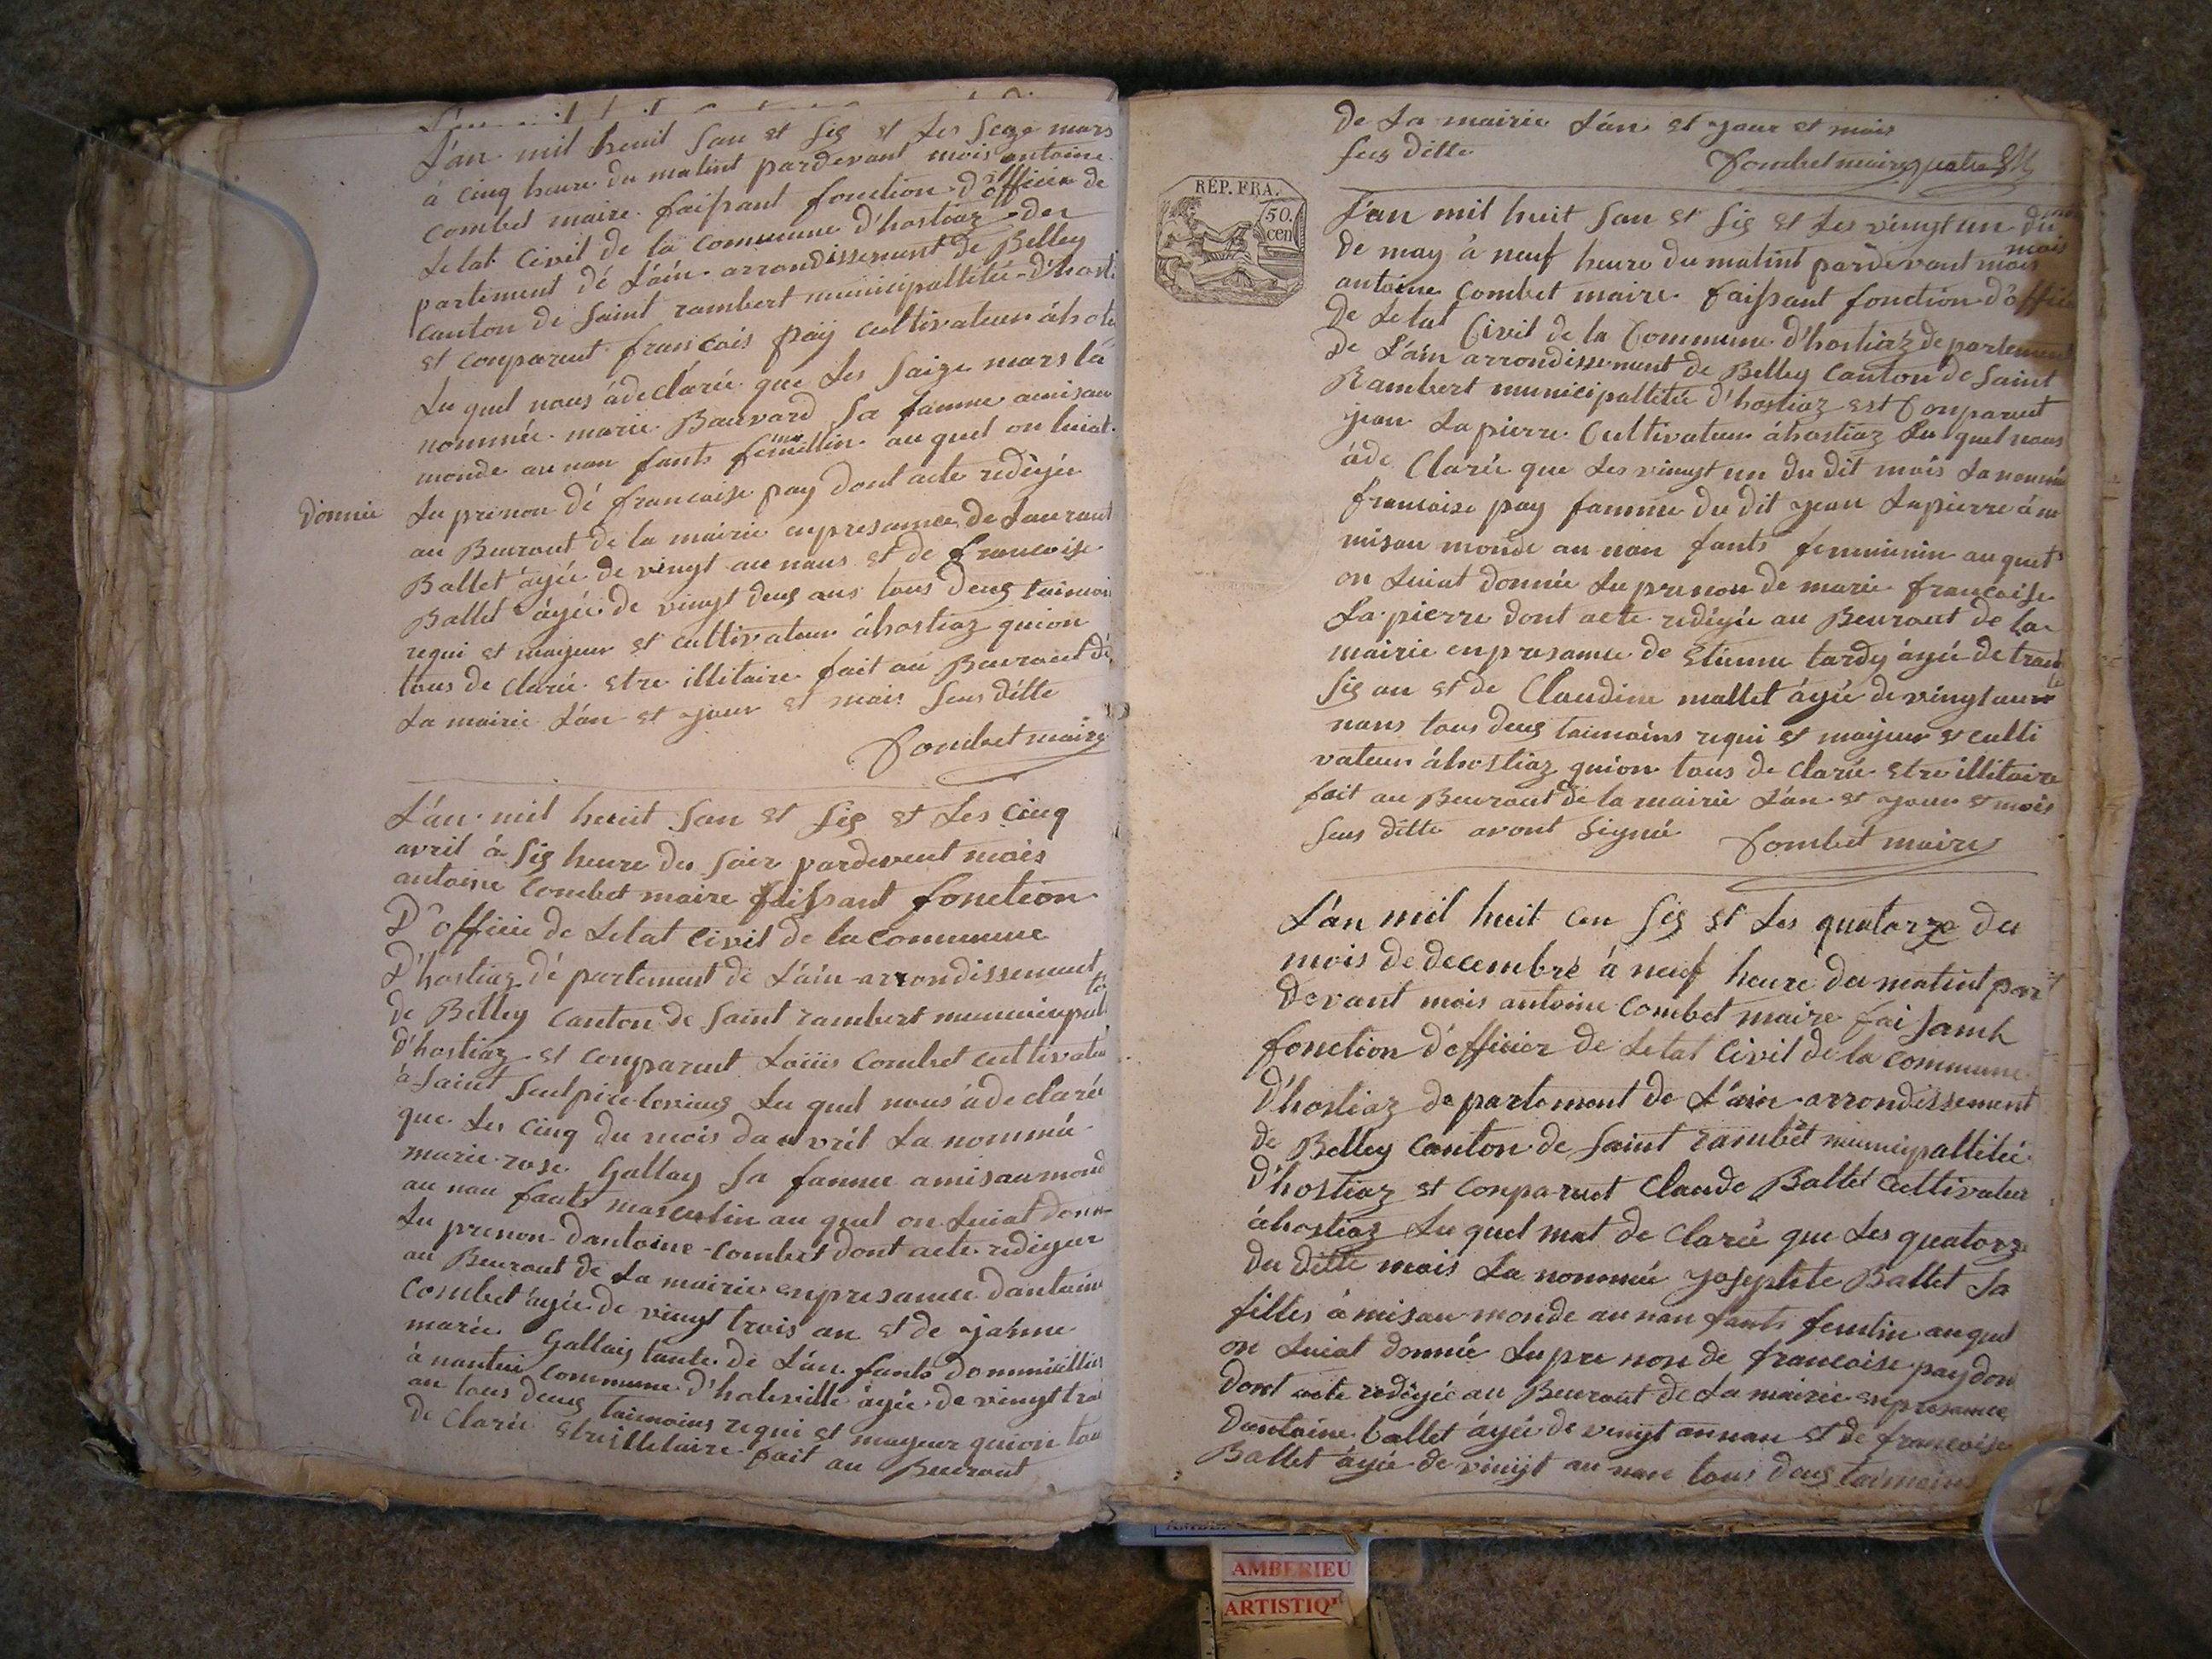 L'an mil heuit San et Sig et Les Seize mars
à cinq heure du matint pardevant mois antoine
combet maire faissant fonction d'officier de
Letat Civil de la Commune d'hostiaz de
partement dé L'ain arrondissement de Belley
canton de Saint rambert municipallitée d'hosti
et conparrut francais pay cultivateur áhoti
Lu quel nous à declarée que Les Saize mars la
nommée marie Bauvard Sa famme amisau
monde au nan fants feminin au quel on luiat
donnée Lu prenon dé francaise pay dont acte redigée
au Beuraut de la mairie enpresance de Laurant
Ballet àgée de vingt au nans et de francoise
Ballet àgée de vingt deus ans tous deus taimoin
requi et majeur et cultivateur áhostiaz quion
tous de clarée etre illitaire fait au Beuraut de
La mairie L'án et jour et mais Sus ditte
Combet maire
L'án mil heuit San et Sig et Les Cinq
avril à Sig heure du Soir pardevent mois
antoine Combet maire faissant fonction
D'officié de Letat Civil de la commune
D'hostiaz dé partement de L'áin arrondissement
de Belley canton de Saint rambert municipal
d'hostiaz et conparrut Loüis Combet cultivateu
à Saint Seulpice Leviens Lu quel nous á declaré
que Les Cinq du mois da avril La nommée
marie rose Gallay Sa famme amisaumond
au nan fants masculin au quel on Luiat donn
Lu prenon dantoine Combet dont acte redigeé
au Beuraut de La mairie enpresance dantoin
Combet ágée de vingt trois an et de jánne
marie Gallay tante de L'án fants dommicillié
à nantui Commune d'hateville àgée de vingt troi
an tous deus taimoins requi et majeur quion tou
de Clarée etre illitaire fait au Beuraut
de La mairie L'án et jour et mais
Sus ditte
Combet maire
RÉP. FRA.
50.
cen
L'an mil huit San et Sig et Les vingt un du mois
de may à neuf heure du matint pardevant mois
antoine Combet maire faissant fonction d'offici
De Letat Civil de la Commune d'hostiaz departement
de L'áin arrondissement de Belley Canton de Saint
Rambert municipallitée d'hostiaz est Conparrut
jean Lapierre Cultivateur áhostiaz Lu quel nous
áde Clarée que Les vingt un du dit mois La nommée
francaise pay famme du dit jean Lapierre ám
misau monde au nan fants femininin au quel
on Luiat donnée Lu prenon de marie francaise
Lapierre dont acte redigée au Beuraut de la
mairie enpresance de Etienne tardy àgée de trant
Sig an et de Claudine mallet àgée de vingt au
nans tous deus taimoins requi et majeur et culti
vateur áhostiaz quion tous de Clarée etre illitaire
fait au Beuraut de la mairie L'án et jour et mois
Sus ditte avont Signée Combet maire
L'án mil huit Cen Sig et Les quatorze du
mois de decembre à neuf heure du matint par
devant mois antoine Combet maire fai Sant
fonction d'officier de Letat Civil de la commune
D'hostiaz departement de L'áin arrondissement
de Belley Canton de Saint rambêt municipallitée
D'hostiaz et Conparrut Claude Ballet Cultivateur
áhostiaz Lu quel mat de Clarée que Les quatorze
du ditte mois La nommée josephte Ballet Sa
filles à misau monde au nan fants femlin auquel
on Luiat donnée Lu pre non de francaise pay don
dont acte redigée au Beuraut de La mairie enpresance
Dantoine ballet àgée de vingt an nan et de francoise
Ballet àgée de vingt au nans tous deus taimoins
AMBERIEU
ARTISTIQ